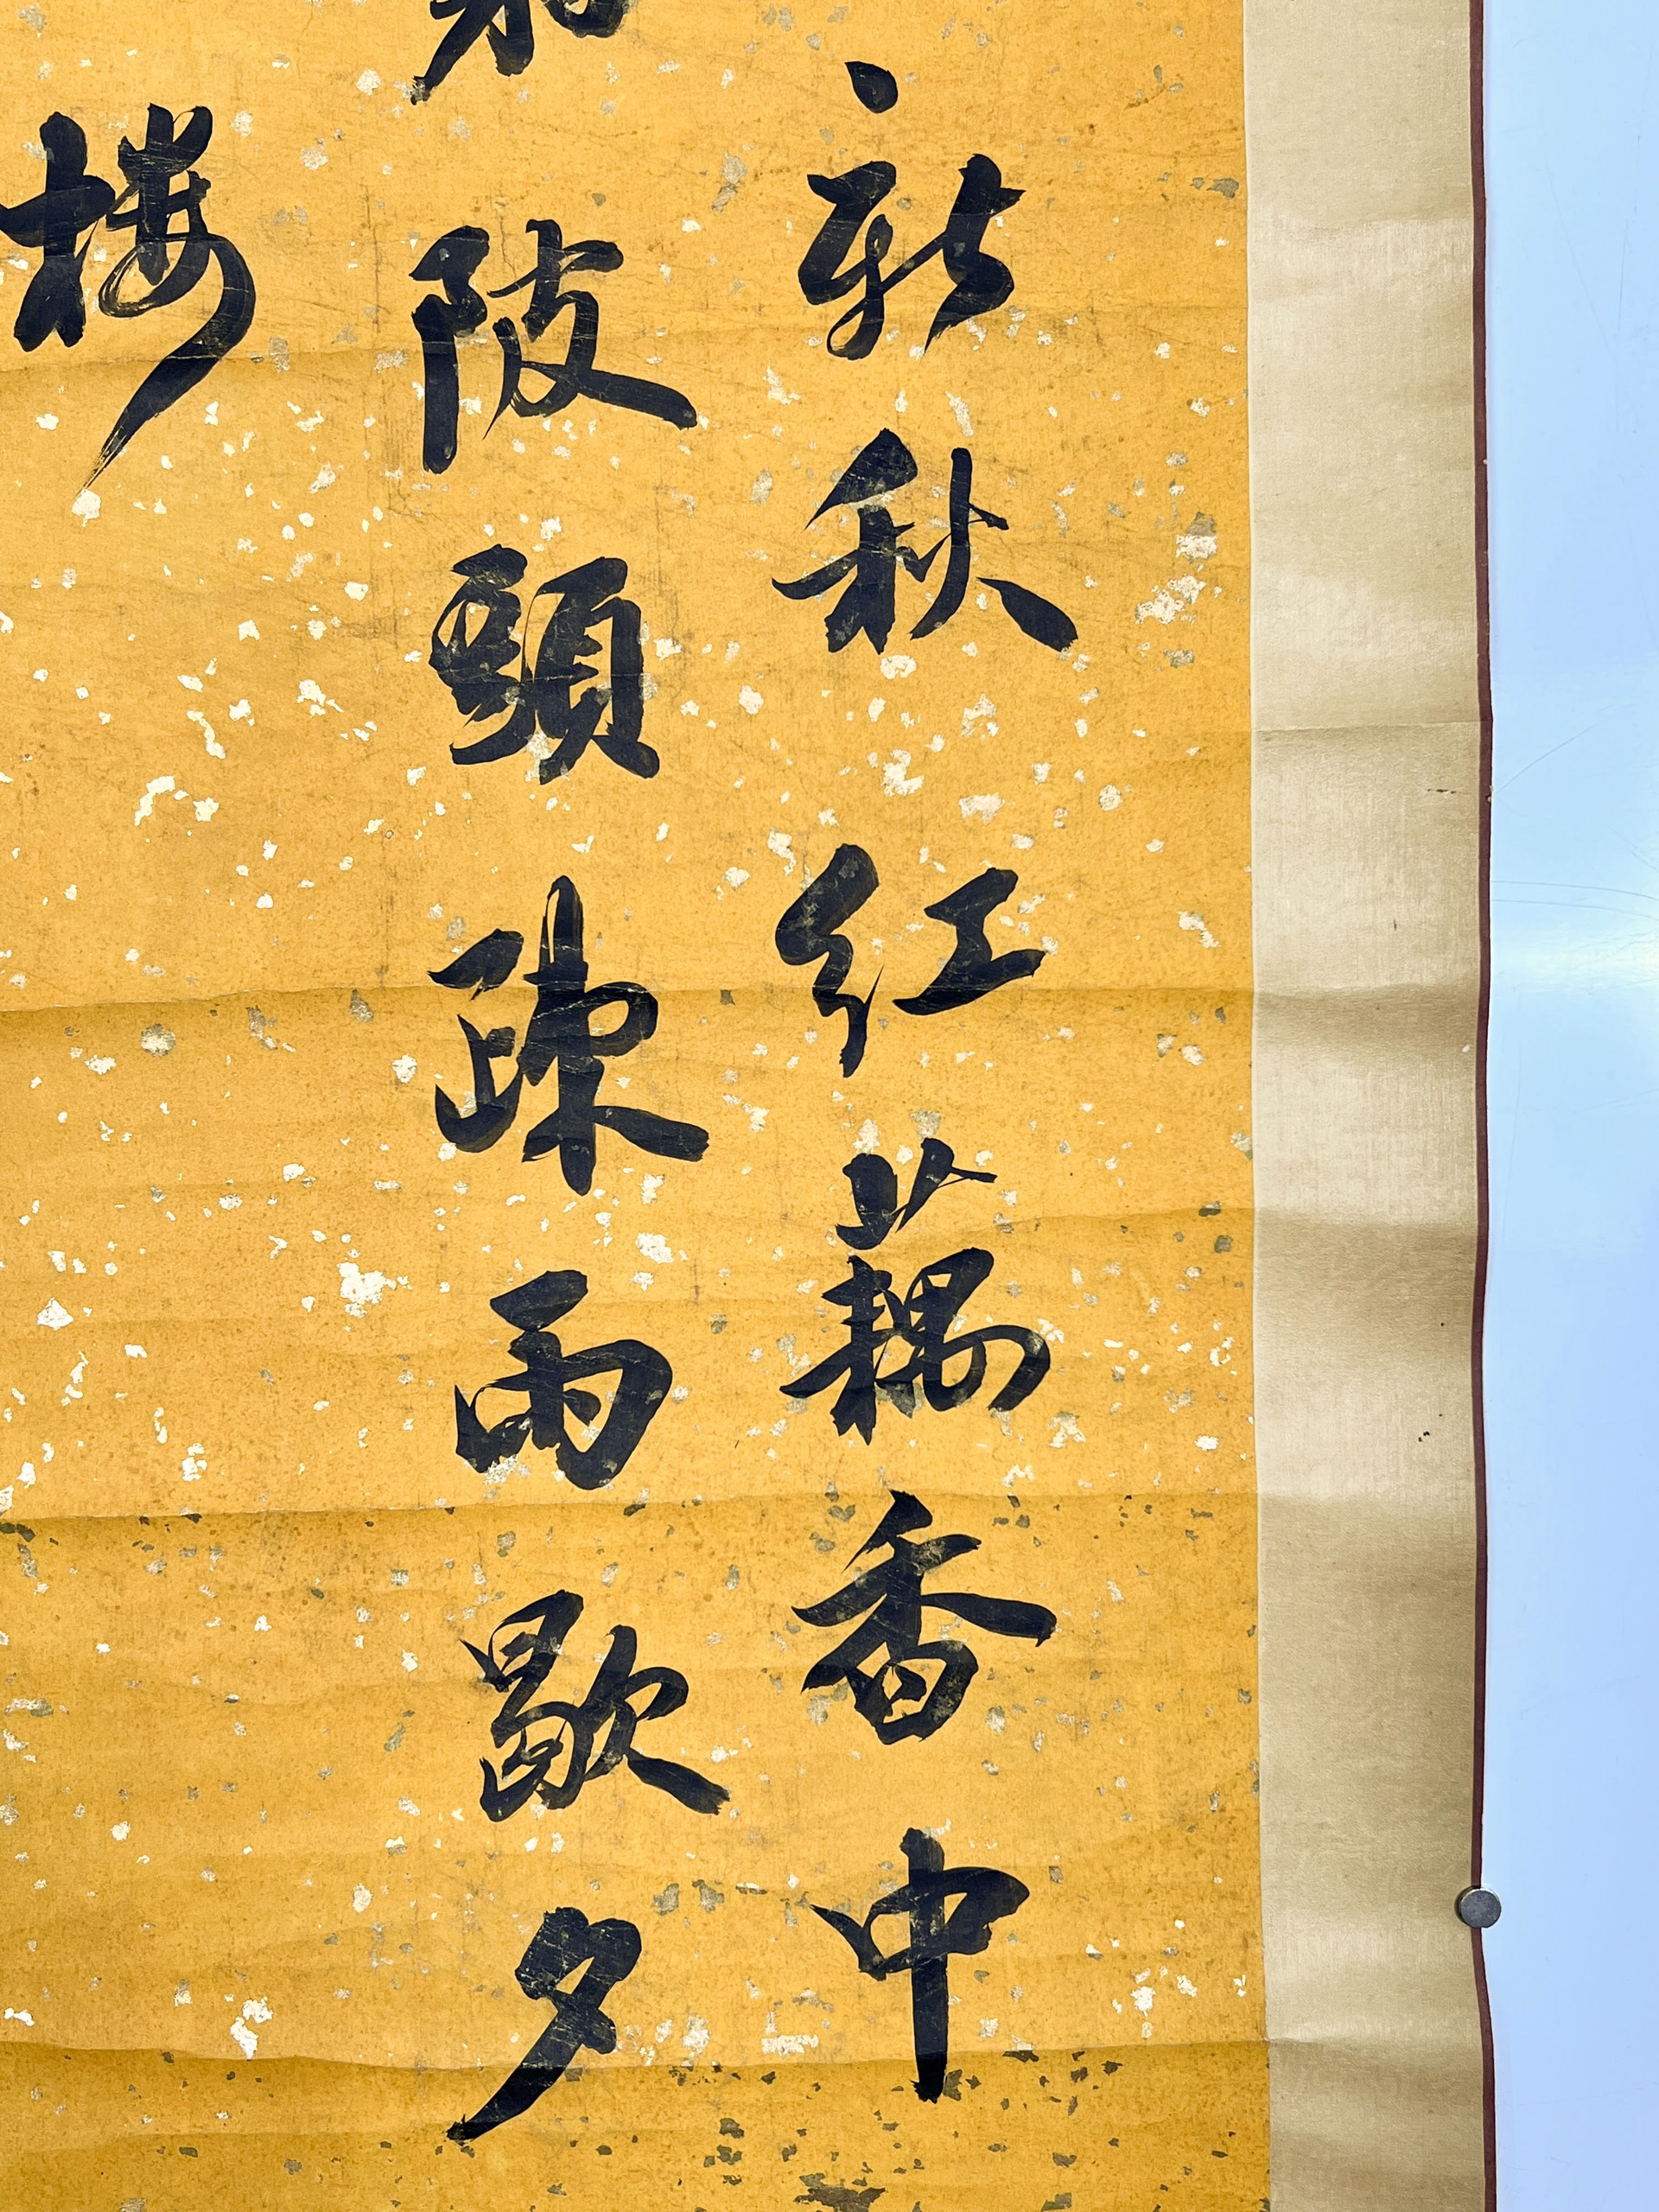 新秋红藕香中
陂頭疎雨歇夕
楼